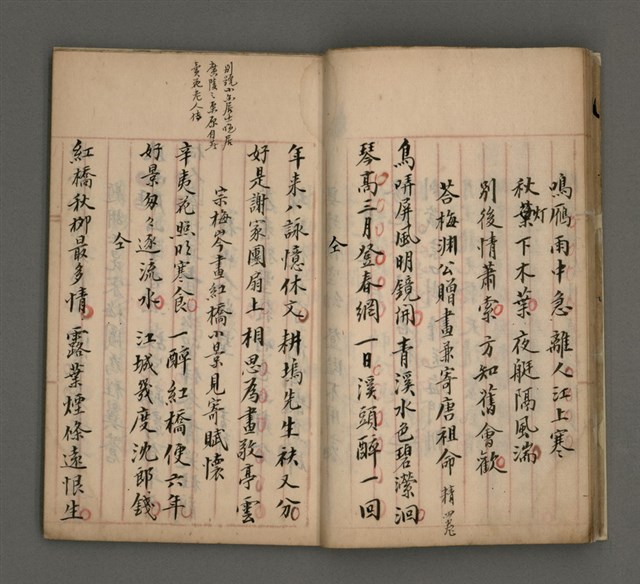 鳴雁雨中急離人江上寒
秋葉灯下木葉夜艇隔風湍
別後情蕭索方知舊會歡
荅梅淵公贈畫兼寄唐祖命 精四卷
鳥哢屏風明鏡開青溪水色碧瀠洄
琴高三月登春網一日溪頭醉一回
仝
年来八詠憶休文耕塢先生袂又分
好是謝家團扇上相思為畫敬亭雲
宗梅岑畫紅橋小景見寄賦懷
辛夷花照明寒食一醉紅橋便六年
好景匆々逐流水江城幾度沈郎錢
仝
紅橋秋柳最多情露葉煙條遠恨生